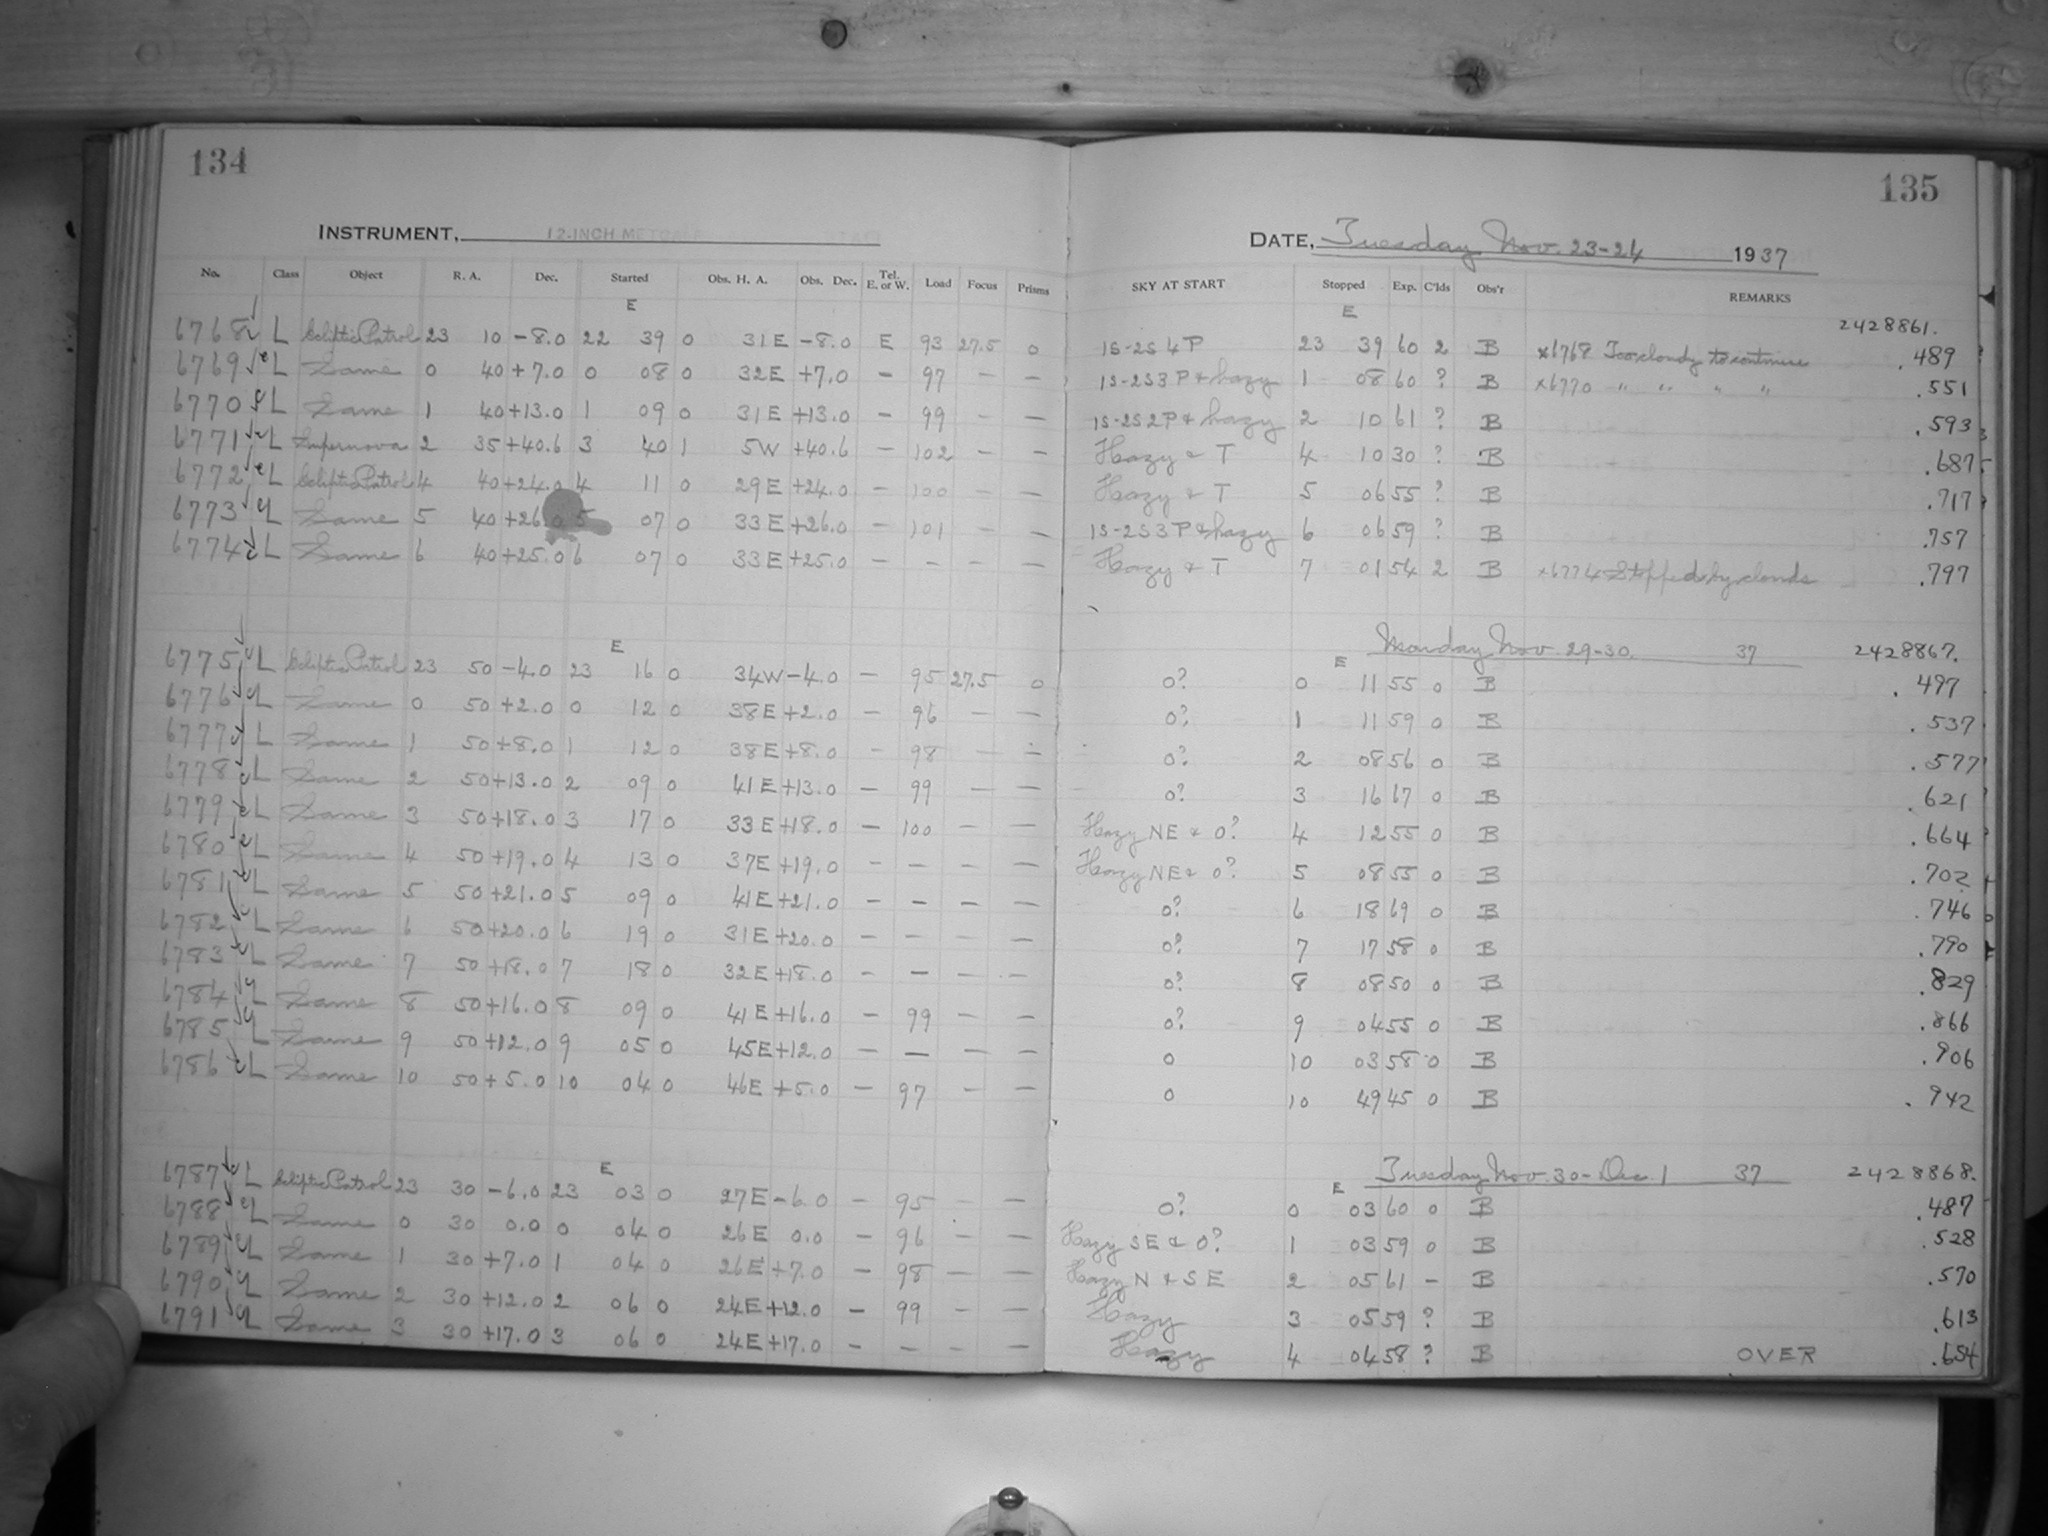 134
INSTRUMENT, 12-INCH METCALF
No. Class Object R. A. Dec. Started Obs. H. A. Obs. Dec. Tel. E. or W. Load Focus Prisms
E
6768 L Ecliptic Patrol 23 10 -8.0 22 39 0 31E -8.0 E 93 27.5 0
6769 L Same 0 40 +7.0 0 08 0 32E +7.0 - 97 - -
6770 L Same 1 40 +13.0 1 09 0 31E +13.0 - 99 - -
6771 L Supernova 2 35 +40.6 3 40 1 5W +40.6 - 102 - -
6772 L Ecliptic Patrol 4 40 +24.0 4 11 0 29E +24.0 - 100 - -
6773 L Same 5 40 +26.0 5 07 0 33E +26.0 - 101 - -
6774 L Same 6 40 +25.0 6 07 0 33E +25.0 - - - -
E
6775 L Ecliptic Patrol 23 50 -4.0 23 16 0 34W -4.0 - 95 27.5 0
6776 L Same 0 50 +2.0 0 12 0 38E +2.0 - 96 - -
6777 L Same 1 50 +8.0 1 12 0 38E +8.0 - 98 - -
6778 L Same 2 50 +13.0 2 09 0 41E +13.0 - 99 - -
6779 L Same 3 50 +18.0 3 17 0 33E +18.0 - 100 - -
6780 L Same 4 50 +19.0 4 13 0 37E +19.0 - - - -
6781 L Same 5 50 +21.0 5 09 0 41E +21.0 - - - -
6782 L Same 6 50 +20.0 6 19 0 31E +20.0 - - - -
6783 L Same 7 50 +18.0 7 18 0 32E +18.0 - - - -
6784 L Same 8 50 +16.0 8 09 0 41E +16.0 - 99 - -
6785 L Same 9 50 +12.0 9 05 0 45E +12.0 - - - -
6786 L Same 10 50 +5.0 10 04 0 46E +5.0 - 97 - -
E
6787 L Ecliptic Patrol 23 30 -6.0 23 03 0 27E -6.0 - 95 - -
6788 L Same 0 30 0.0 0 04 0 26E 0.0 - 96 - -
6789 L Same 1 30 +7.0 1 04 0 26E +7.0 - 98 - -
6790 L Same 2 30 +12.0 2 06 0 24E +12.0 - 99 - -
6791 L Same 3 30 +17.0 3 06 0 24E +17.0 - - - -
135
DATE, Tuesday Nov. 23-24 1937
SKY AT START Stopped Exp. C'lds Obs'r REMARKS
E 2428861.
1S-2S 4P 23 39 60 2 B x6768 Too cloudy to continue .489
1S-2S 3P & hazy 1 08 60 ? B x6770 " " " " .551
1S-2S 2P & hazy 2 10 61 ? B .593
Hazy & T 4 10 30 ? B .687
Hazy & T 5 06 55 ? B .717
1S-2S 3P & hazy 6 06 59 ? B .757
Hazy & T 7 01 54 2 B x6774 Stopped by clouds .797
E Monday Nov. 29-30. 37 2428867.
0? 0 11 55 0 B .497
0? 1 11 59 0 B .537
0? 2 08 56 0 B .577
0? 3 16 67 0 B .621
Hazy NE & 0? 4 12 55 0 B .664
Hazy NE & 0? 5 08 55 0 B .702
0? 6 18 69 0 B .746
0? 7 17 58 0 B .790
0? 8 08 50 0 B .829
0? 9 04 55 0 B .866
0 10 03 58 0 B .906
0 10 49 45 0 B .942
E Tuesday Nov. 30-Dec. 1 37 2428868.
0? 0 03 60 0 B .487
Hazy SE & 0? 1 03 59 0 B .528
Hazy N & SE 2 05 61 - B .570
Hazy 3 05 59 ? B .613
Hazy 4 04 58 ? B OVER .654